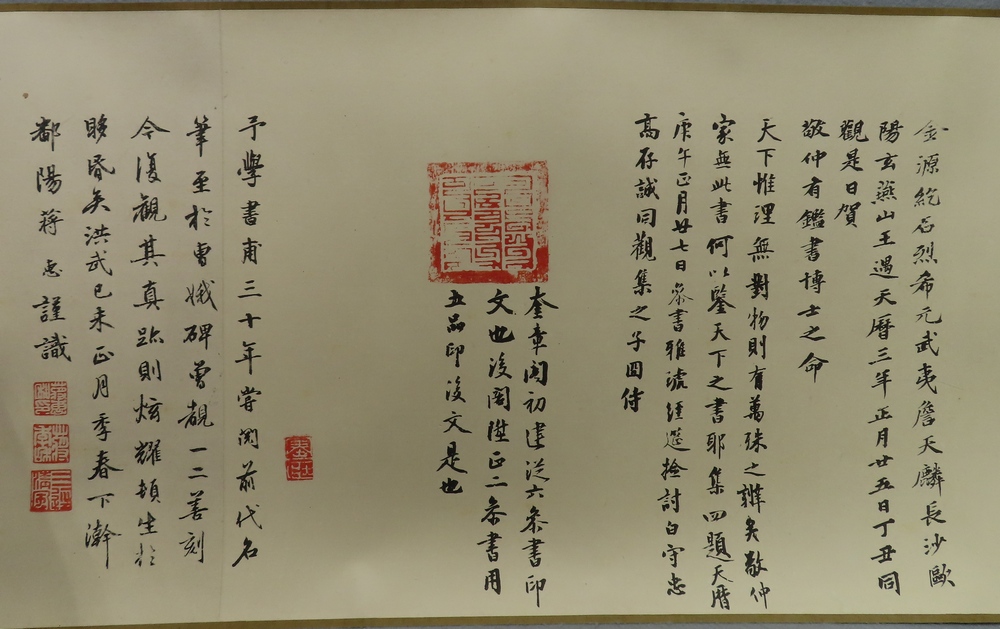 金源紇石烈希元武夷詹天麟長沙歐
陽玄燕山王遇天曆三年正月廿五日丁丑同
觀是日賀
敬仲有鑑書博士之命
天下惟理無對物則有萬殊之辨矣敬仲
家無此書何以鑒天下之書耶集四題天曆
庚午正月廿七日參書雅琥經歷檢討白守忠
高存誠同觀集之子四侍
奎章閣初建從六參書印
文也後閣陞正二參書用
五品印後文是也
予學書甫三十年嘗閱前代名
筆至於曹娥碑曾覩一二善刻
今復觀其真跡則炫耀頓生於
眵昏矣洪武己未正月季春下澣
鄱陽蔣惠謹識